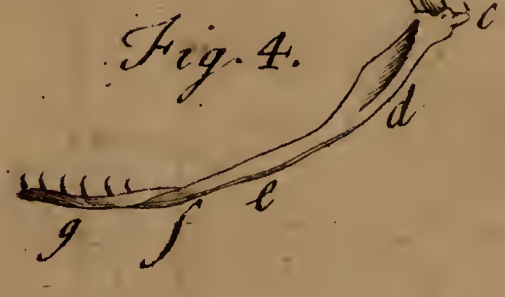 Fig. 4.
c
d
e
f
g